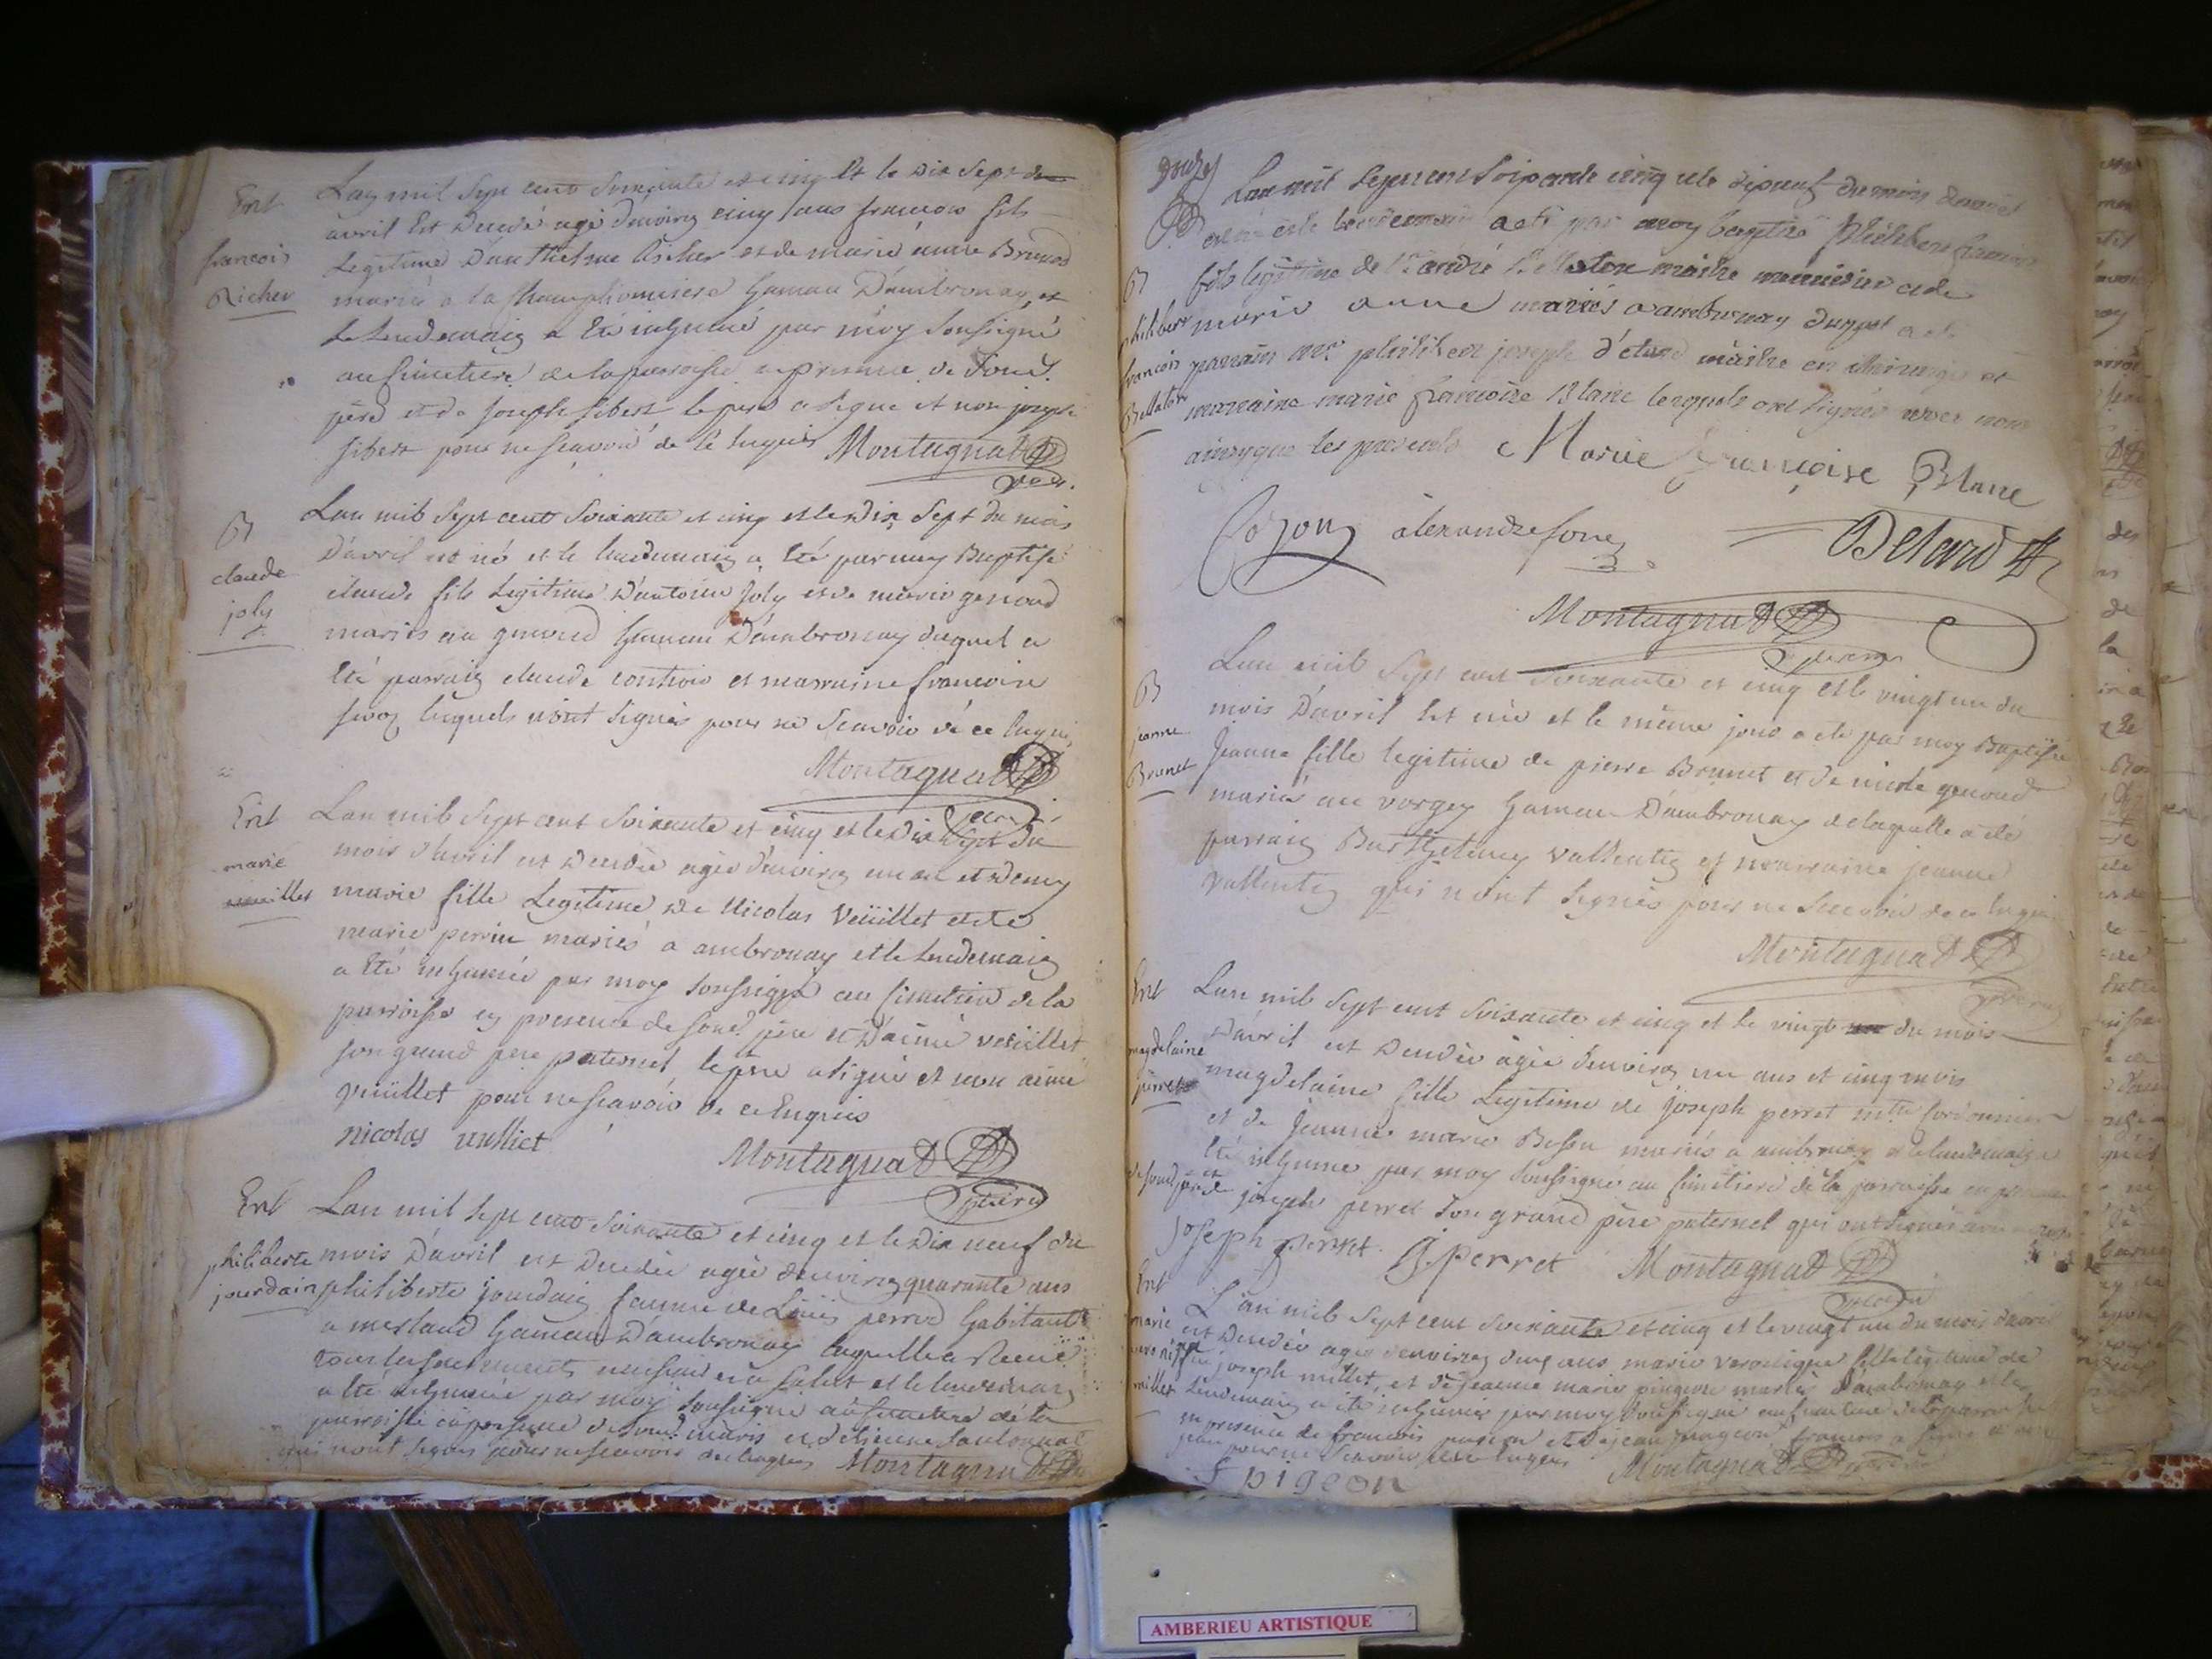 Ent
francois
Richer
Lan mil Sept cent Soixante et cinq Et le Dix Sept de
avril Est Decedé agé Denviron cinq ans francois fils
Legitime D'anthelme Richer et de marie anne Brunod
mariés a la Championniere hameau D'ambronay et
Le Lendemain a Eté inhumé par moy Soussigné
au Cimetiere de la parroisse en presence de Soud.
père et de Joseph sibert le pere a signé et non joseph
sibert pour ne sçavoir de ce Enquis Montagnat
B
claude
joly
Lan mil Sept cent Soixante et cinq et le Dix Sept du mois
D'avril est né et le lendemain a Eté par moy Baptisé
claude fils Legitime D'antoine Joly et de marie genoud
mariés au hameau D'ambronay duquel a
Eté parrain claude et marraine francoise
lesquels n'ont signés pour ne Scavoir de ce Enquis
Montagnat
Ent
marie
Lan mil Sept cent Soixante et cinq et le Dix Sept du
mois d'avril est Decedée agée denviron un an et Demy
marie fille Legitime De Nicolas Veüillet et de
marie perrin mariés a ambronay et le Lendemain
a Eté inhumée par moy soussigné au Cimetiere de la
parroisse en presence de soud. père et D'aimé veüillet
son grand pere paternel le pere a signé et non aimé
Veüillet pour ne scavoir de ce Enquis
nicolas vulliet Montagnat
Ent
philiberte
jourdain
Lan mil Sept cent Soixante et cinq et le Dix neuf du
mois D'avril est Decedée agée denviron quarante ans
philiberte jourdain femme de Loüis perrod habitants
a merland hameau D'ambronay laquelle a Recüe
tous les sacrements a salut et le lendemain
a Eté inhumée par moy soussigné au Cimetiere de la
parroisse en presence de soud. maris et d'etienne
qui n'ont signés pour ne scavoir de ce enquis Montagnat
B
philibert
francois
Bellaton
Lan mil Sept cent Soixante cinq et le dixneuf du mois davril
a eté par moy baptisé philibert francois
fils legitime de Sr andré Bellaton maitre menuisier et de
marie anne mariés a ambronay duquel a eté
parrain mr philibert joseph d'etard maitre en chirurgie et
marraine marie françoise Blanc lesquels ont signés avec nous
ainsy que les presents Marie Françoise Blanc
Cozon alexandre Detard
Montagnat
B
jeanne
Brunet
Lan mil Sept cent Soixante et cinq et le vingt un du
mois D'avril Est née et le même jour a eté par moy Baptisée
Jeanne fille legitime de pierre Brunet et de nicole genoud
mariés au vorgey hameau D'ambronay de laquelle a eté
parrain Barthelemy Vallentin et marraine jeanne
Vallentin qui n'ont signés pour ne Scavoir de ce Enquis
Montagnat
Ent
magdelaine
perret
Lan mil Sept cent Soixante et cinq et le vingt du mois
D'avril est Decedée agée denviron un ans et cinq mois
magdelaine fille Legitime de joseph perret mtre Cordonnier
et de Jeanne marie Besson mariés a ambronay et le lendemain a
Eté inhumée par moy Soussigné au Cimetiere de la parroisse en presence
de soud. père et de joseph perret son grand père paternel qui ont signés avec nous
Joseph perret J. Perret Montagnat
Ent
marie
veronique
millet
L'an mil Sept cent Soixante et cinq et le vingt un du mois davril
est Decedée agée denviron deux ans marie veronique fille legitime de
joseph millet et de jeanne marie pingeon mariés D'ambronay et le
Lendemain a été inhumée par moy Soussigné au Cimetiere de la parroisse
en presence de francois pingeon et de jean pingeon francois a signé et non
jean pour ne Scavoir de ce Enquis Montagnat
f pigeon
AMBERIEU ARTISTIQUE